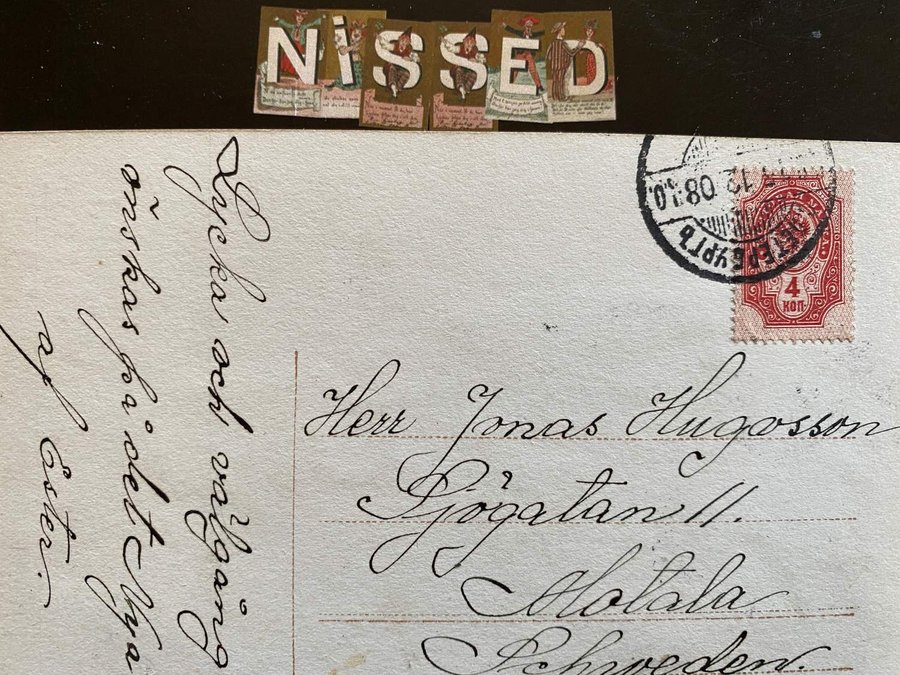 NiSSED
Lycka och välgång
önskas på det Nya
af Ester.
12 08
ПЕТЕРБУРГЪ
4
КОП.
Herr Jonas Hugosson
Sjögatan 11.
Motala
Schweden.